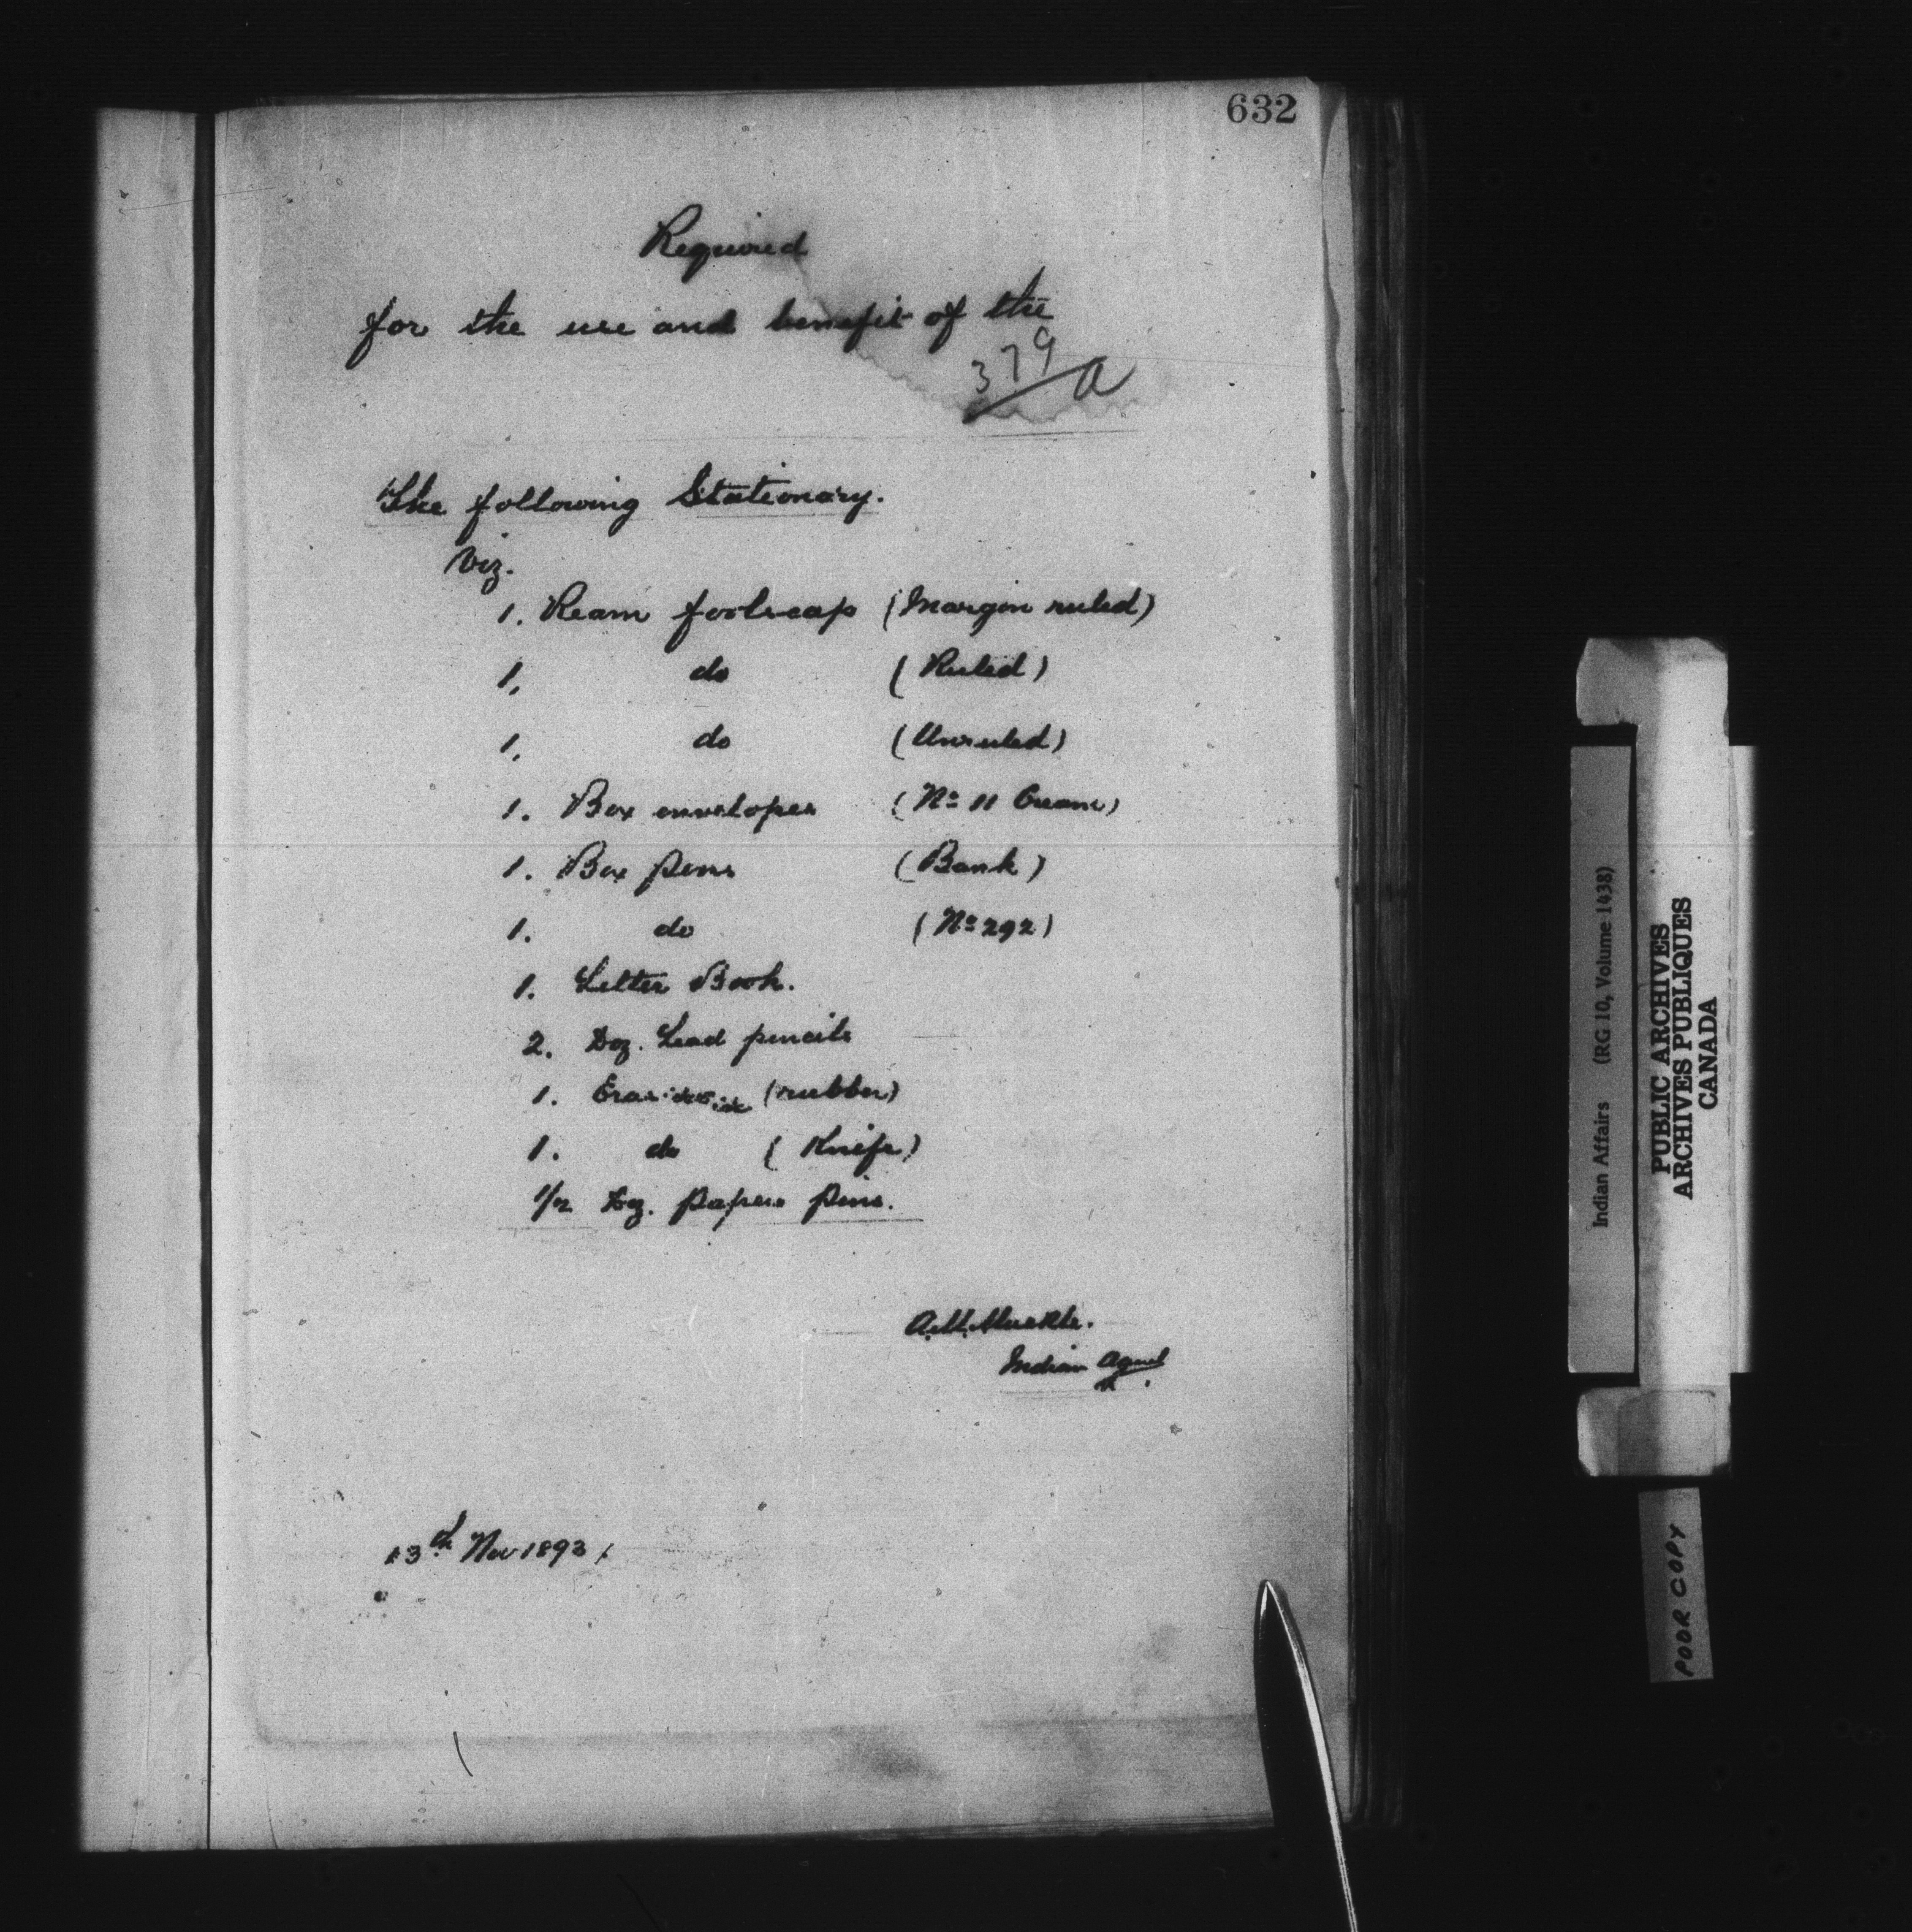 632
Required
for the use and benefit of the
379 a
The following Stationary.
Viz.
1. Ream foolscap (Margin ruled)
1. do (Ruled)
1. do (Unruled)
1. Box envelopes (No 11 Cream)
1. Box pens (Bank)
1. do (No 292)
1. Letter Book.
2. Doz. Lead pencils
1. (rubber)
1. do (Knife)
1/2 Doz. papers pins.
A.M. Muckle.
Indian Agent
13th Nov 1893
Indian Affairs (RG 10, Volume 1438)
PUBLIC ARCHIVES
ARCHIVES PUBLIQUES
CANADA
POOR COPY